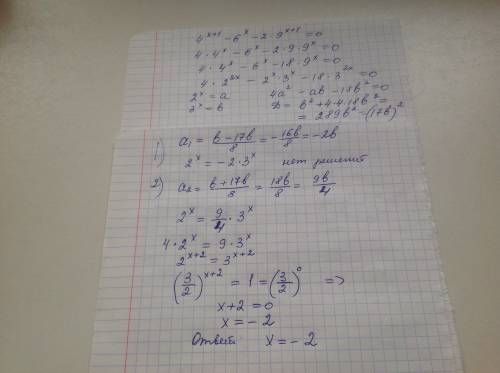 4^{x+1} - 6^x - 2·9^{x+1} = 0
4·4^x - 6^x - 2·9·9^x = 0
4·4^x - 6^x - 18·9^x = 0
4·2^{2x} - 2^x·3^x - 18·3^{2x} = 0
2^x = a 4a² - ab - 18b² = 0
3^x = b D = b² + 4·4·18b² =
= 289b² = (17b)²
1) a₁ = (b - 17b)/8 = -16b/8 = -2b
2^x = -2·3^x нет решений
2) a₂ = (b + 17b)/8 = 18b/8 = 9b/4
2^x = 9/4 · 3^x
4·2^x = 9·3^x
2^{x+2} = 3^{x+2}
(3/2)^{x+2} = 1 = (3/2)^0 =>
x + 2 = 0
x = -2
Ответ: x = -2